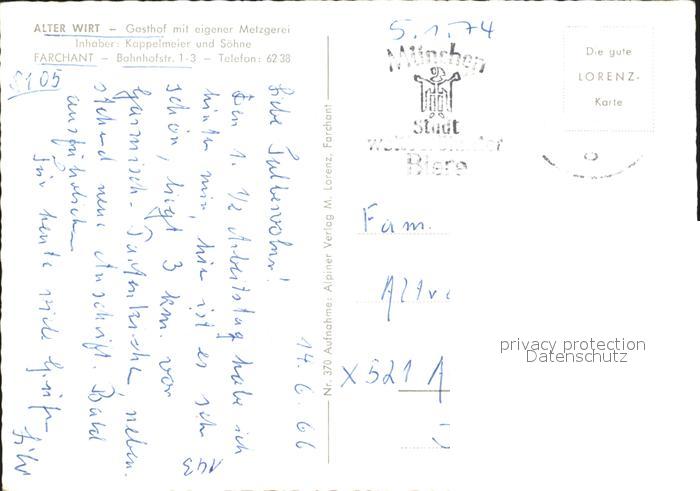 ALTER WIRT – Gasthof mit eigener Metzgerei
Inhaber: Kappelmeier und Söhne
FARCHANT – Bahnhofstr. 1-3 – Telefon: 62 38
8105
5.1.74
München
Stadt
Biere
Die gute
LORENZ-
Karte
14.6.66
Den 1. ½ Arbeitstag habe ich
hinter mir, hier ist es sehr
schön, liegt 3 km. vor
Garmisch-Partenkirchen, neben-
stehend neue Anschrift. Bald
ausführlicher
Für heute viele Grüße
143
Nr. 370 Aufnahme: Alpiner Verlag M. Lorenz, Farchant
Fam.
X521 A
privacy protection
Datenschutz